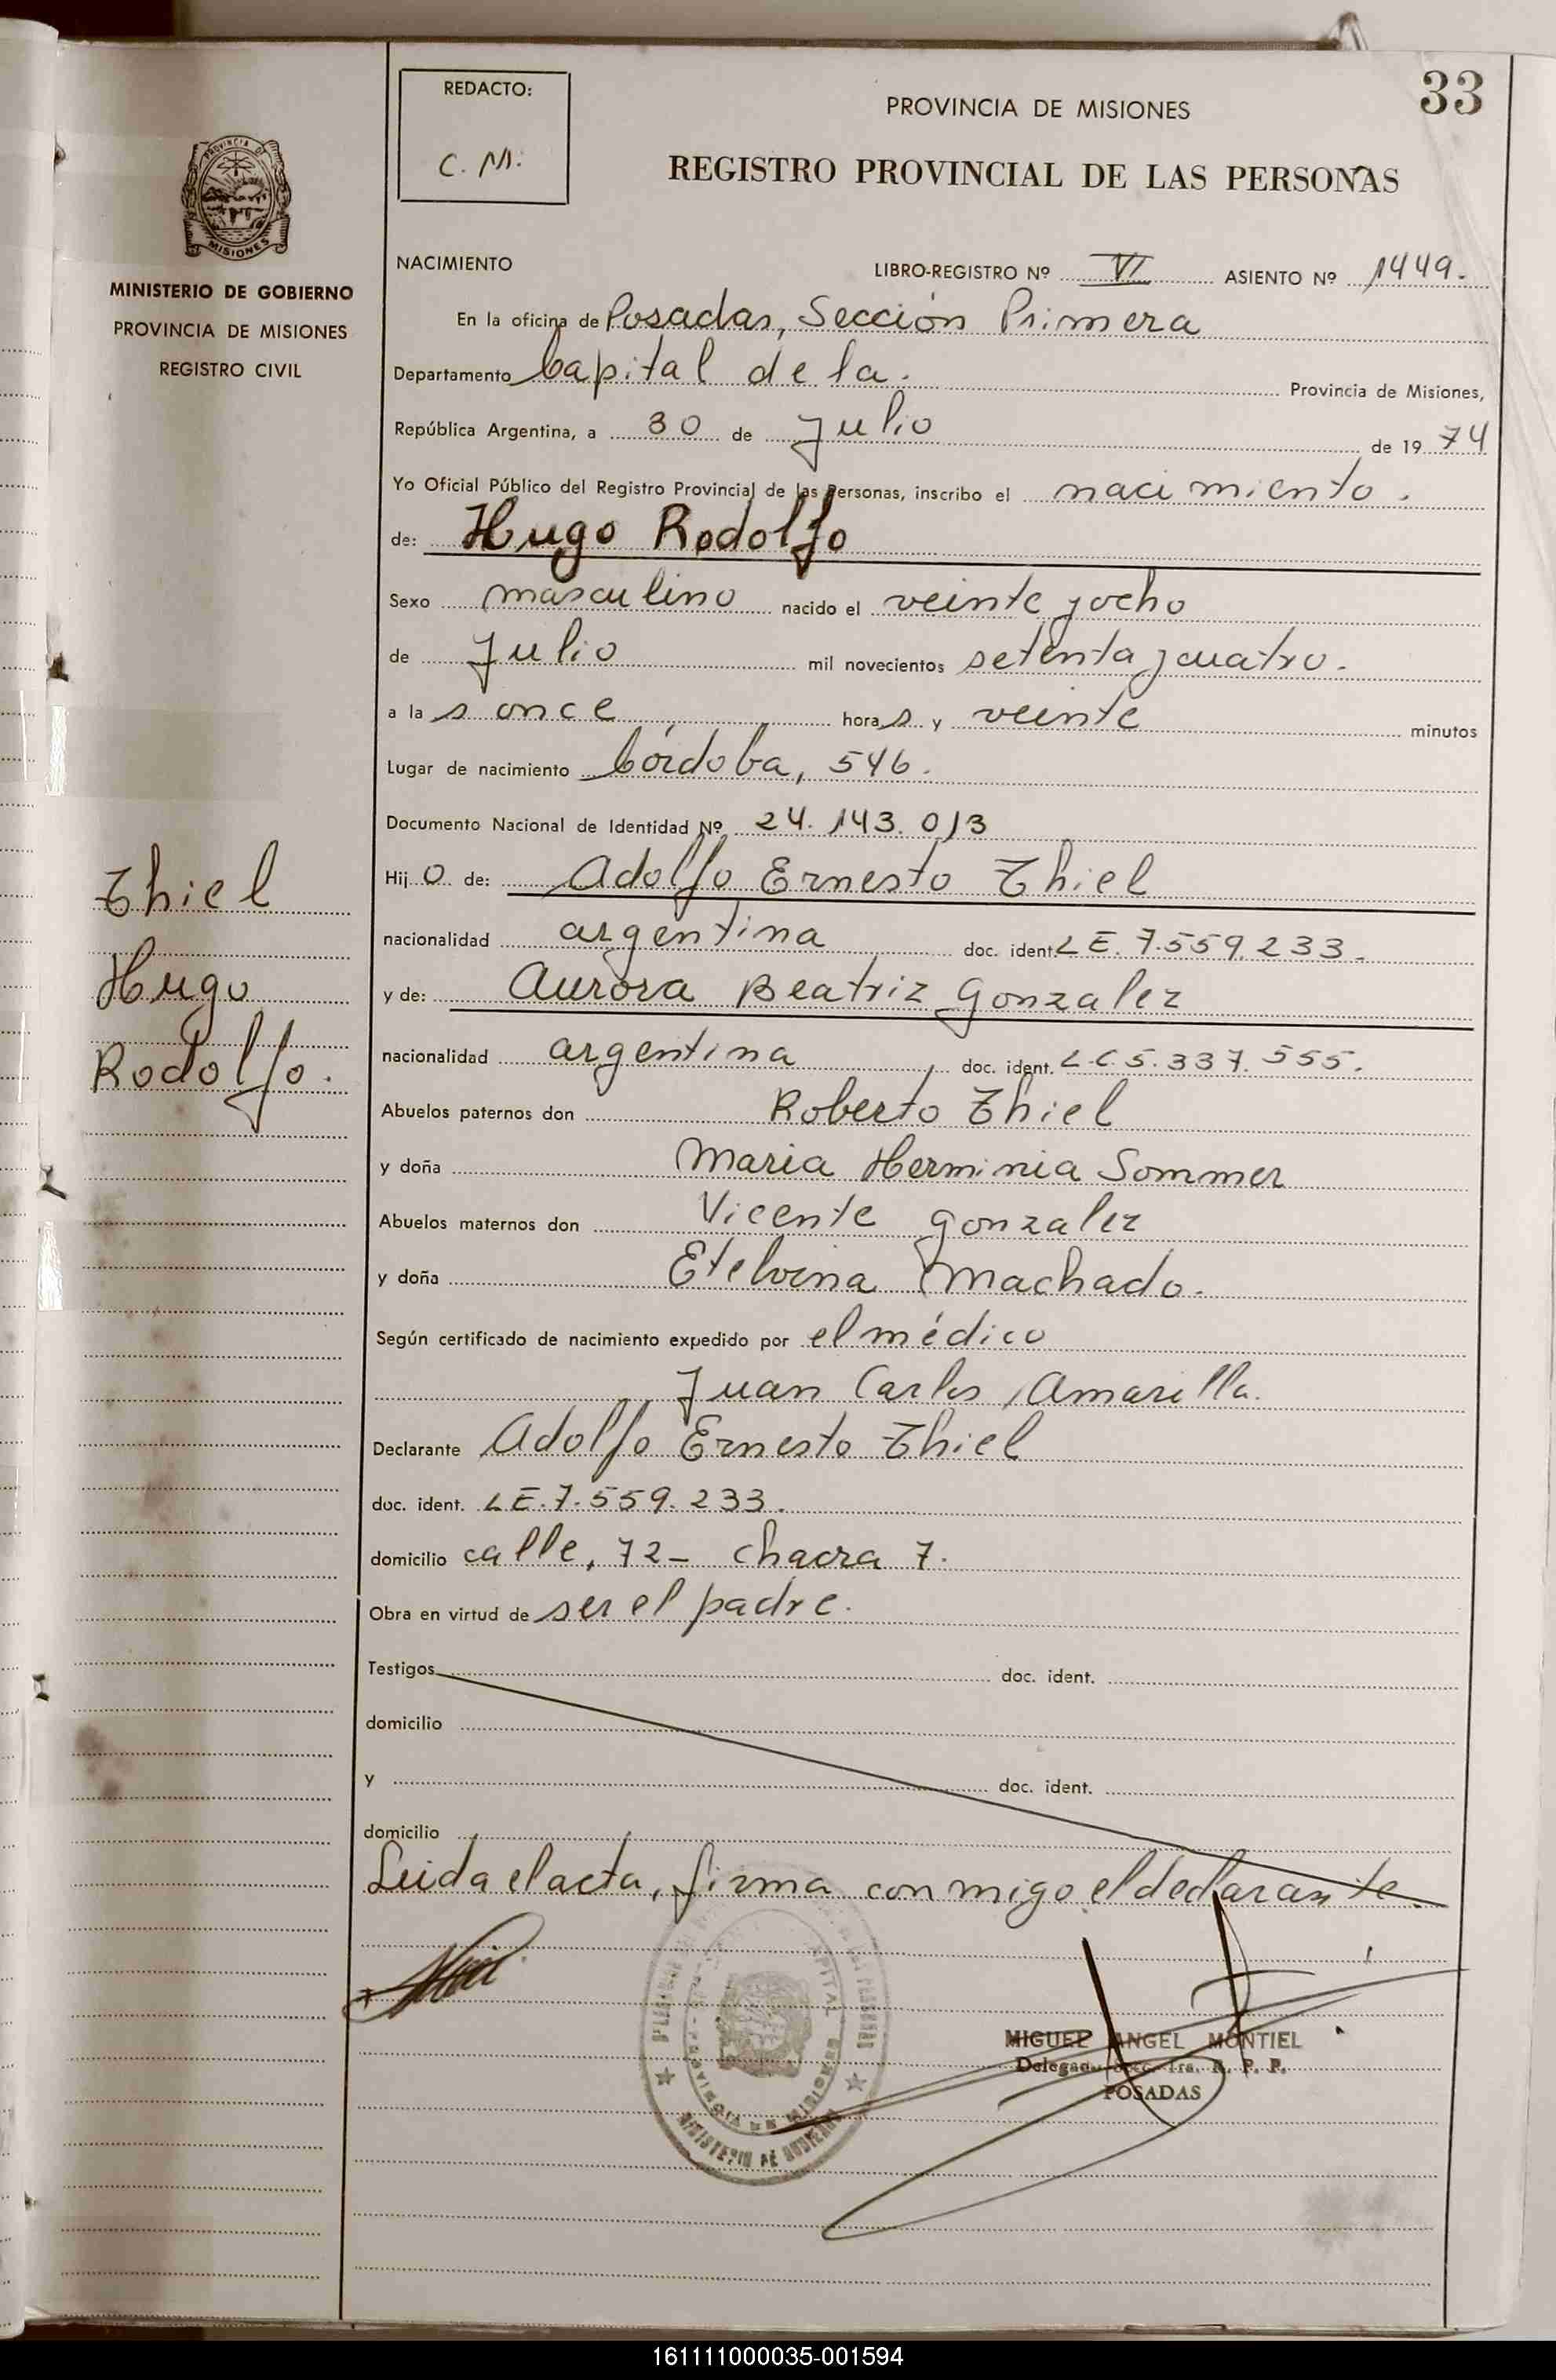 33
REDACTO:
C. M.
PROVINCIA DE MISIONES
REGISTRO PROVINCIAL DE LAS PERSONAS
PROVINCIA DE
MISIONES
MINISTERIO DE GOBIERNO
PROVINCIA DE MISIONES
REGISTRO CIVIL
NACIMIENTO LIBRO-REGISTRO Nº VI ASIENTO Nº 1449.
En la oficina de Posadas, Sección Primera
Departamento Capital de la. Provincia de Misiones,
República Argentina, a 30 de Julio de 19 74
Yo Oficial Público del Registro Provincial de las Personas, inscribo el nacimiento.
de: Hugo Rodolfo
Sexo masculino nacido el veinte y ocho
de Julio mil novecientos setenta y cuatro.
a la s once hora s y veinte minutos
Lugar de nacimiento Córdoba, 546.
Documento Nacional de Identidad Nº 24.143.013
Thiel
Hugo
Rodolfo.
Hij o de: Adolfo Ernesto Thiel
nacionalidad argentina doc. ident. LE. 7.559.233.
y de: Aurora Beatriz Gonzalez
nacionalidad argentina doc. ident. L.C 5.337.555.
Abuelos paternos don Roberto Thiel
y doña Maria Herminia Sommer
Abuelos maternos don Vicente Gonzalez
y doña Etelvina Machado.
Según certificado de nacimiento expedido por el médico
Juan Carlos Amarilla.
Declarante Adolfo Ernesto Thiel
doc. ident. LE.7.559.233.
domicilio calle, 72- chacra 7.
Obra en virtud de ser el padre.
Testigos doc. ident.
domicilio
y doc. ident.
domicilio
Leida el acta, firma conmigo el declarante.
MINISTERIO DE GOBIERNO
MIGUEL ANGEL MONTIEL
Delegado Secc. 1ra. R. P. P.
POSADAS
161111000035-001594